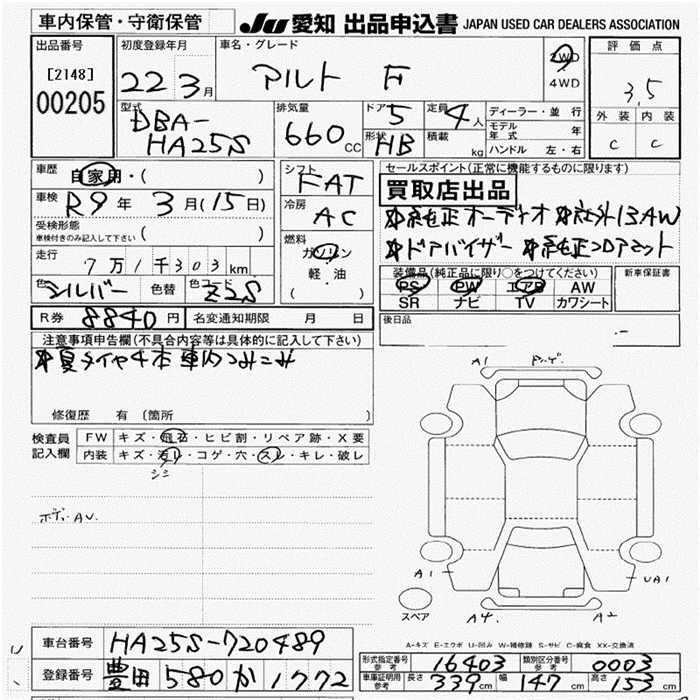 車内保管・守衛保管
JU 愛知 出品申込書 JAPAN USED CAR DEALERS ASSOCIATION
出品番号
[2148]
00205
初度登録年月
22 3月
車名・グレード
アルト F
2WD
4WD
評価点
3.5
外装 内装
C C
型式
DBA-
HA25S
排気量
660 CC
ドア 5
形状 HB
定員 4人
積載 kg
ディーラー・並行
モデル年式 年
ハンドル 左・右
車歴
自家用・( )
車検
R9年 3月(15日)
受検形態
車検付きのみ記入して下さい ( )
走行
7万1千303km
色 シルバー 色替 色コード Z2S
シフト
FAT
冷房
AC
燃料
ガソリン
軽・油
( )
セールスポイント(正常に機能するものに限ります)
買取店出品
*純正オーディオ *社外13AW
*ドアバイザー *純正フロアマット
装備品(純正品に限り○をつけてください)
PS PW エアB AW
SR ナビ TV カワシート
新車保証書
R券 8840円 名変通知期限 月 日
後日品
注意事項申告欄(不具合内容等は具体的に記入して下さい)
*夏タイヤ4本車内つみこみ
修復歴 有 〔箇所 〕
検査員
記入欄
FW キズ・飛石・ヒビ割・リペア跡・X要
内装 キズ・汚レ・コゲ・穴・スレ・キレ・破レ
シミ
ボディAU.
A1
A1
UA1
スペア
A4.
A2
A-キズ E-エクボ U-凹み W-補修跡 S-サビ C-腐食 XX-交換済
車台番号 HA25S-720489
登録番号 豊田 580 か 1772
形式指定番号 参考 16403 類別区分番号 参考 0003
車庫証明用 参考 長さ 339cm 幅 147cm 高さ 153cm